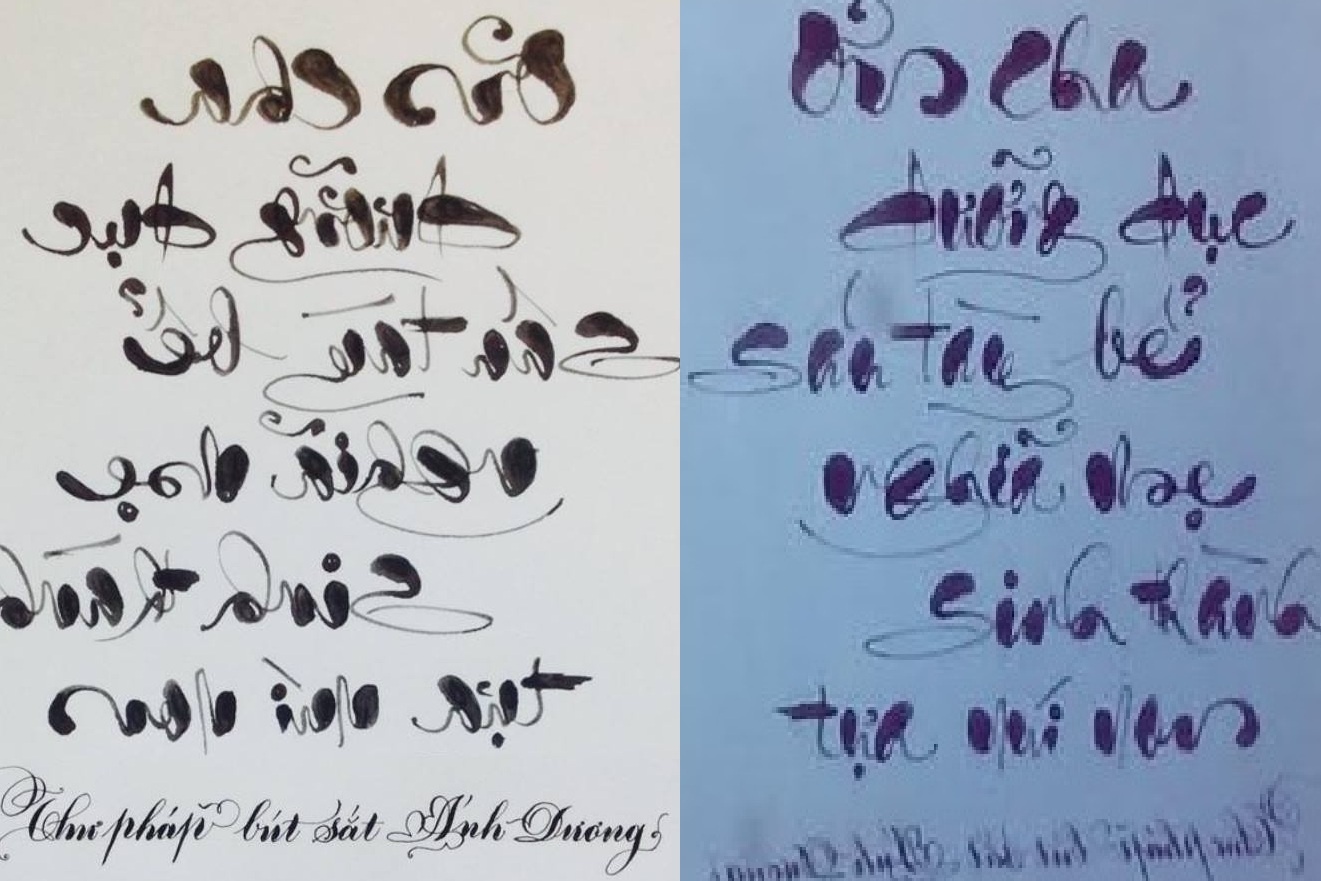 Ơn cha
dưỡng dục
sánh tày bể
nghĩa mẹ
sinh thành
tựa núi non
Thư pháp bút sắt Ánh Dương
Ơn cha
dưỡng dục
sánh tày bể
nghĩa mẹ
sinh thành
tựa núi non
Thư pháp bút sắt Ánh Dương